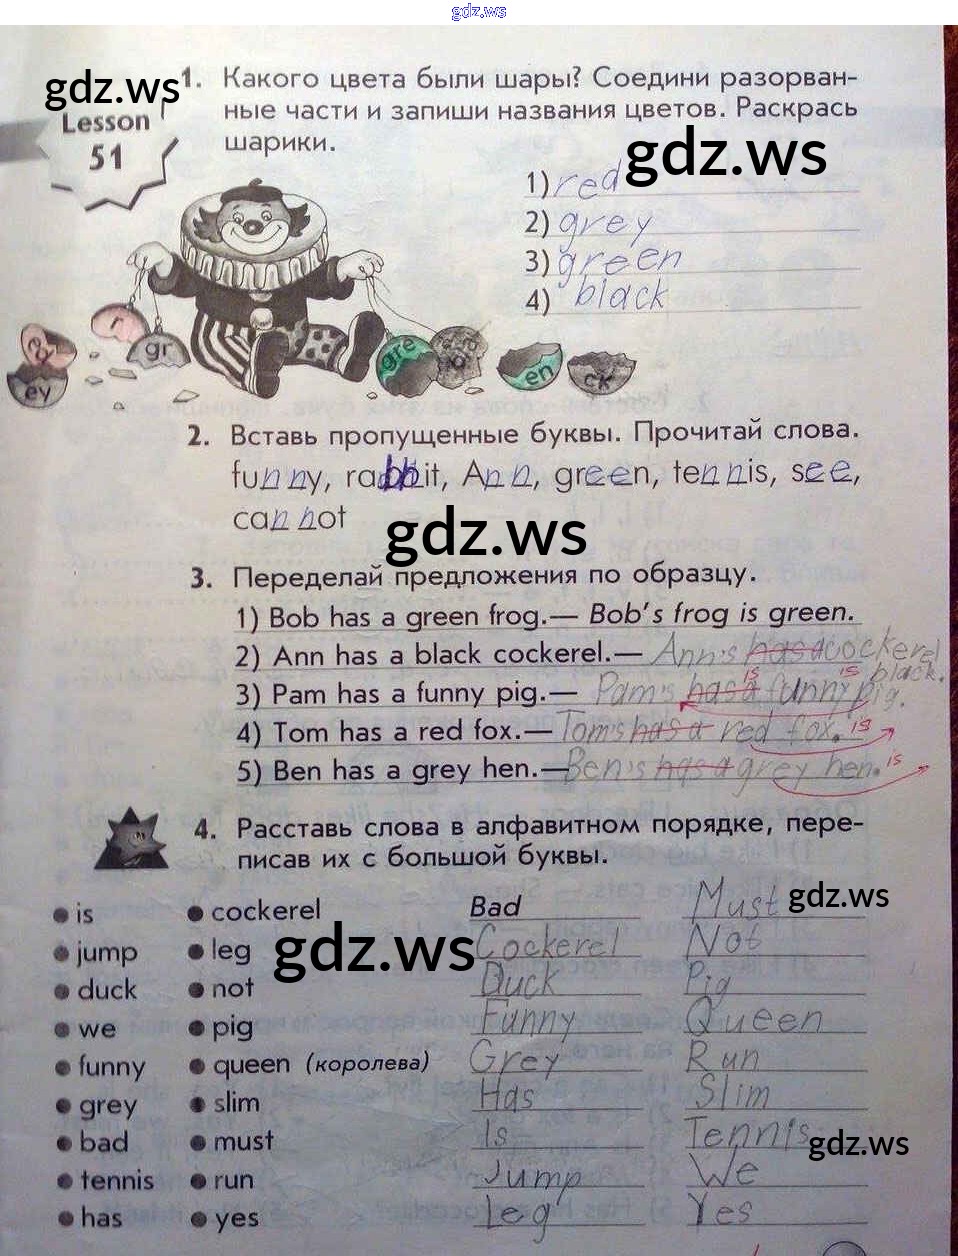 gdz.ws
gdz.ws
Lesson
51
1. Какого цвета были шары? Соедини разорван-
ные части и запиши названия цветов. Раскрась
шарики.
gdz.ws
1) red
2) grey
3) green
4) black
r
gr
ey
gre
en
ck
2. Вставь пропущенные буквы. Прочитай слова.
funny, rabbit, Ann, green, tennis, see,
cannot
gdz.ws
3. Переделай предложения по образцу.
1) Bob has a green frog.— Bob's frog is green.
2) Ann has a black cockerel.— Ann's has a cockerel
is black.
3) Pam has a funny pig.— Pam's has a funny pig.
is
4) Tom has a red fox.— Tom's has a red fox. is
5) Ben has a grey hen.— Ben's has a grey hen. is
4. Расставь слова в алфавитном порядке, пере-
писав их с большой буквы.
gdz.ws
is cockerel Bad Must
jump leg Cockerel Not
gdz.ws
duck not Duck Pig
we pig Funny Queen
funny queen (королева) Grey Run
grey slim Has Slim
bad must Is Tennis
gdz.ws
tennis run Jump We
has yes Leg Yes